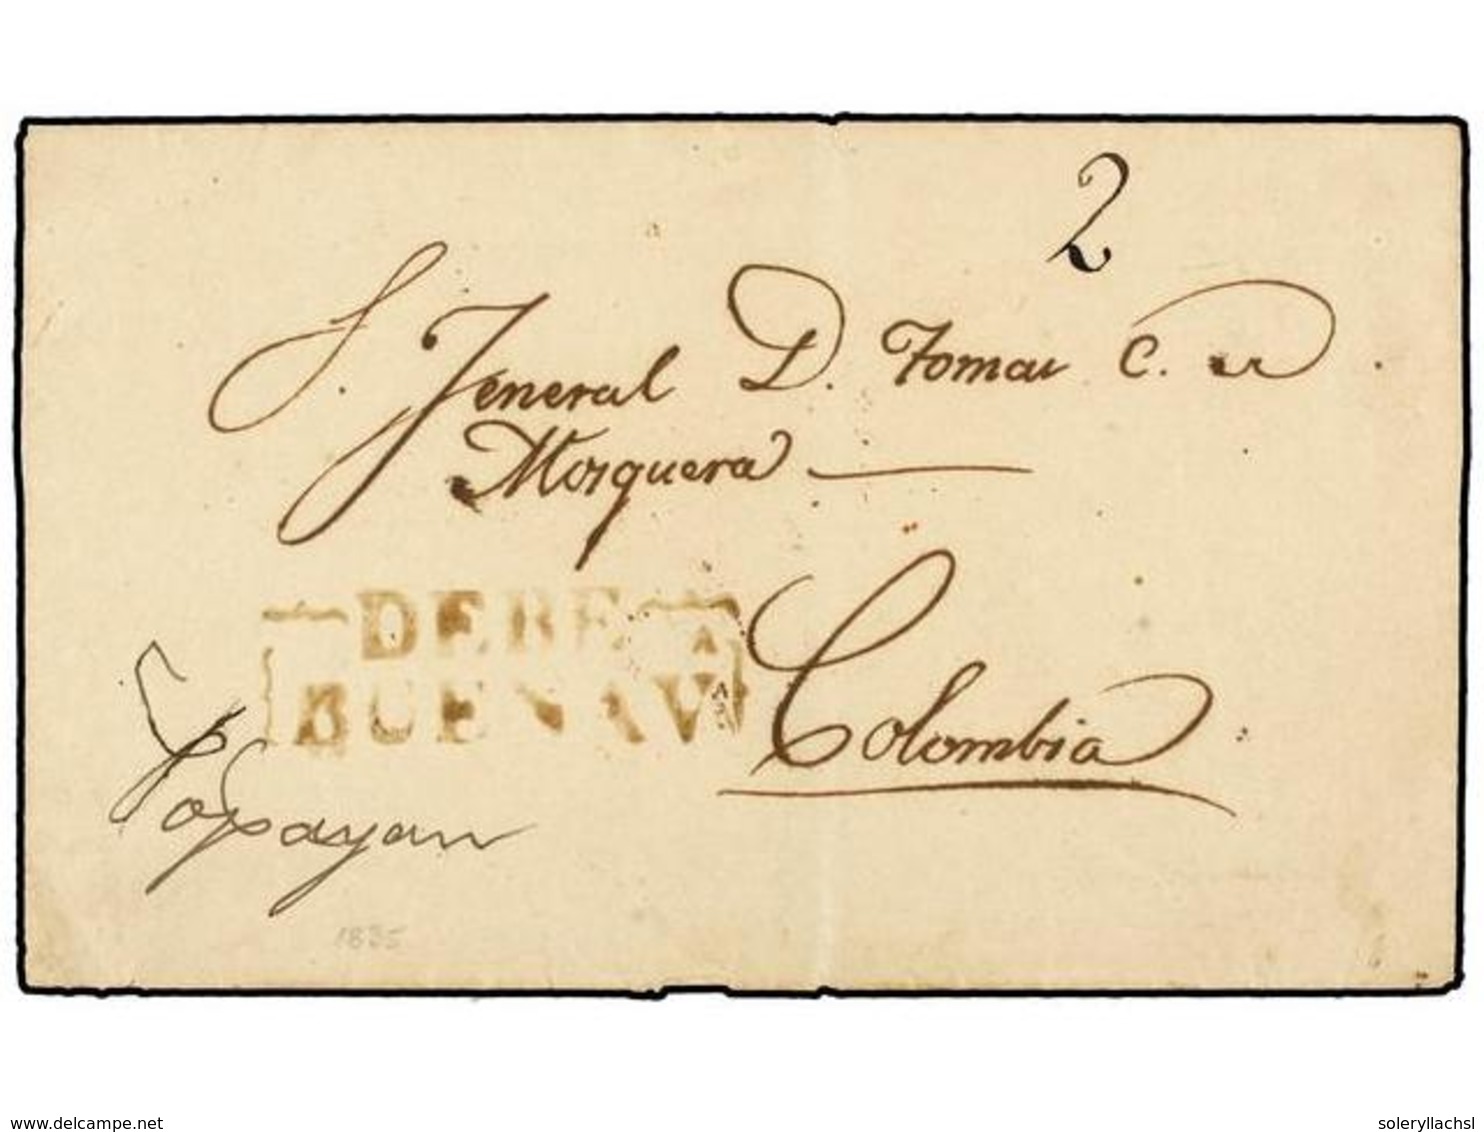 2
S. Jeneral D. Tomas C. de
Mosquera
DEBE
BUENAV
Colombia
Popayan
1835
delcampe.net
soleryllachsl